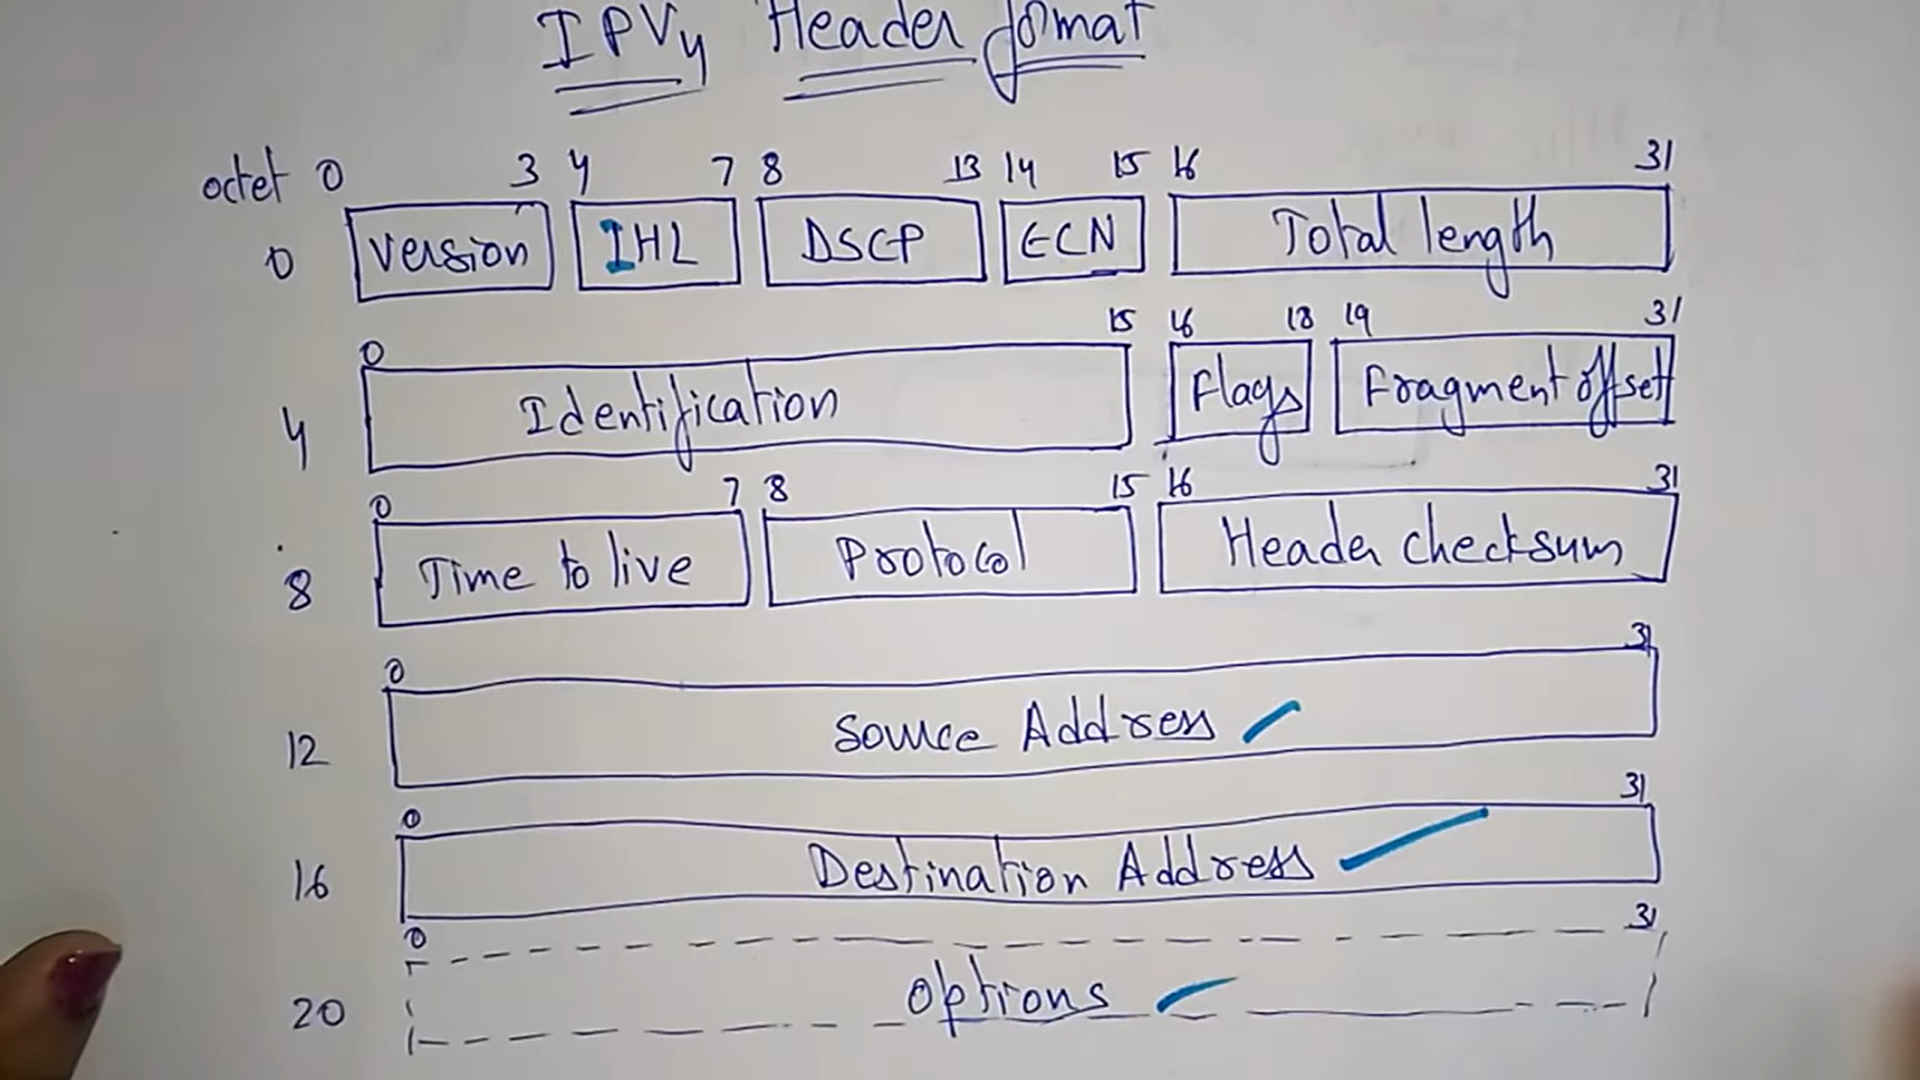 IPV4 Header format
octet 0 3 4 7 8 13 14 15 16 31
0 Version IHL DSCP ECN Total length
0 15 16 18 19 31
4 Identification Flags Fragment offset
0 7 8 15 16 31
8 Time to live Protocol Header checksum
0 31
12 Source Address
0 31
16 Destination Address
0 31
20 Options